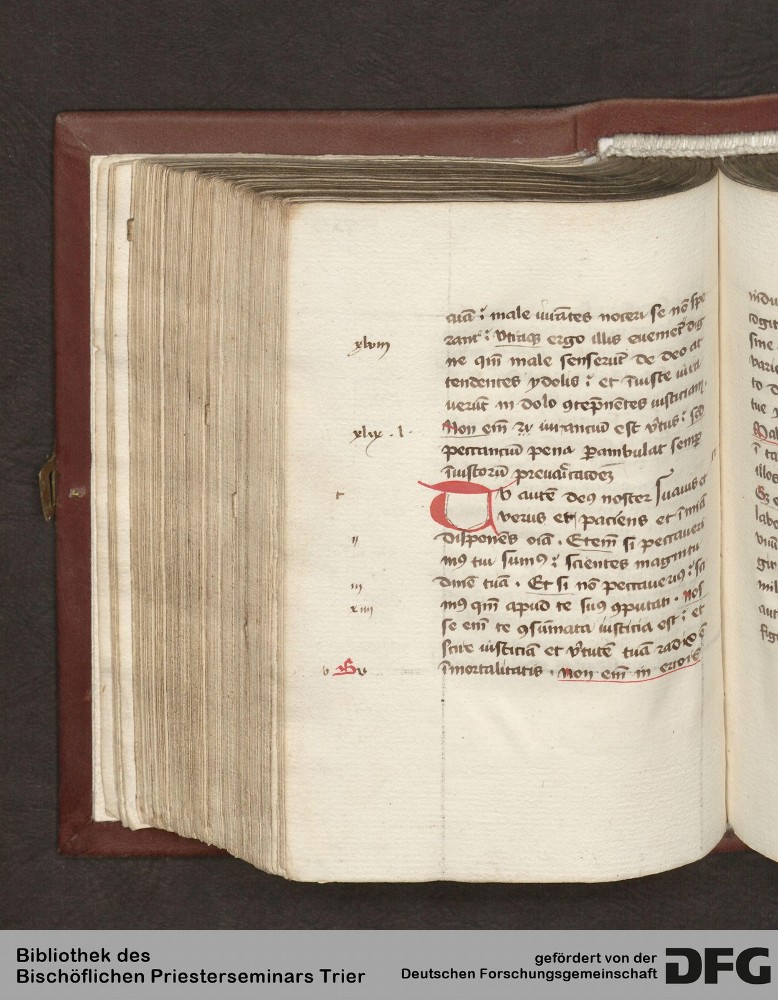 aiam : male iurantes noceri se non spe
xlviij
rant : Utraque ergo illis evenient dig
ne quoniam male senserunt de deo at
tendentes ydolis : et iniuste iura
verunt in dolo contempnentes iusticiam.
xlix . l .
Non enim iurancium est virtus : sed
peccancium pena perambulat semper
iniustorum prevaricationem
Tu autem deus noster suavis et
verus es paciens et in misericordia
ij
disponens omnia . Etenim si peccaveri
mus tui sumus : scientes magnitu
iij
dinem tuam . Et si non peccaverimus : sci
iiij
mus quoniam apud te sumus computati . Nos
se enim te consummata iusticia est : et
scire iusticiam et virtutem tuam radix est
v
immortalitatis . Non enim in errorem
Bibliothek des
Bischöflichen Priesterseminars Trier
gefördert von der
Deutschen Forschungsgemeinschaft
DFG